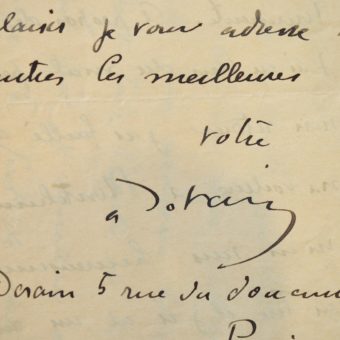 plaisir je vous adresse
amitiés les meilleures
votre
a Derain
Derain 5 rue du douanier